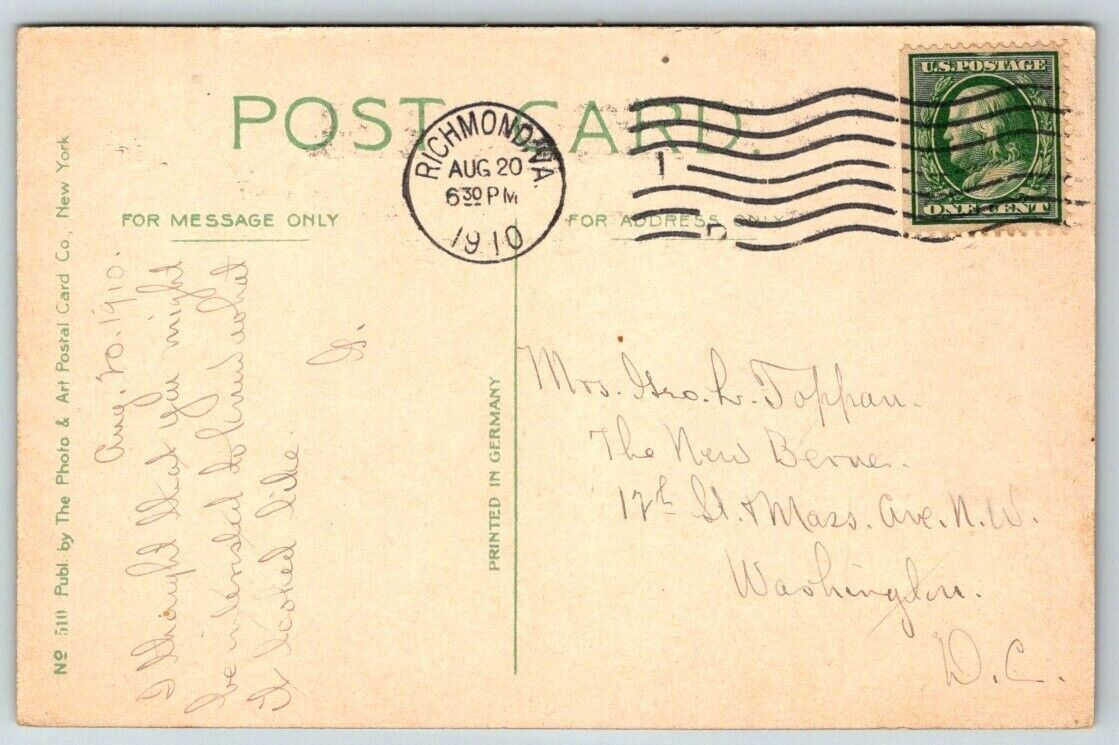 POST CARD.
RICHMOND, VA.
AUG 20
6 30 PM
1910
U.S. POSTAGE
ONE CENT
1
D
FOR MESSAGE ONLY
FOR ADDRESS ONLY
Nº 510 Publ. by The Photo & Art Postal Card Co., New York
Aug. 20. 1910.
I thought that you might
be intersted to know what
it looked like.
G.
PRINTED IN GERMANY
Mrs. Geo. L. Toppan.
The New Berne.
12th St. & Mass. Ave. N. W.
Washington.
D. C.